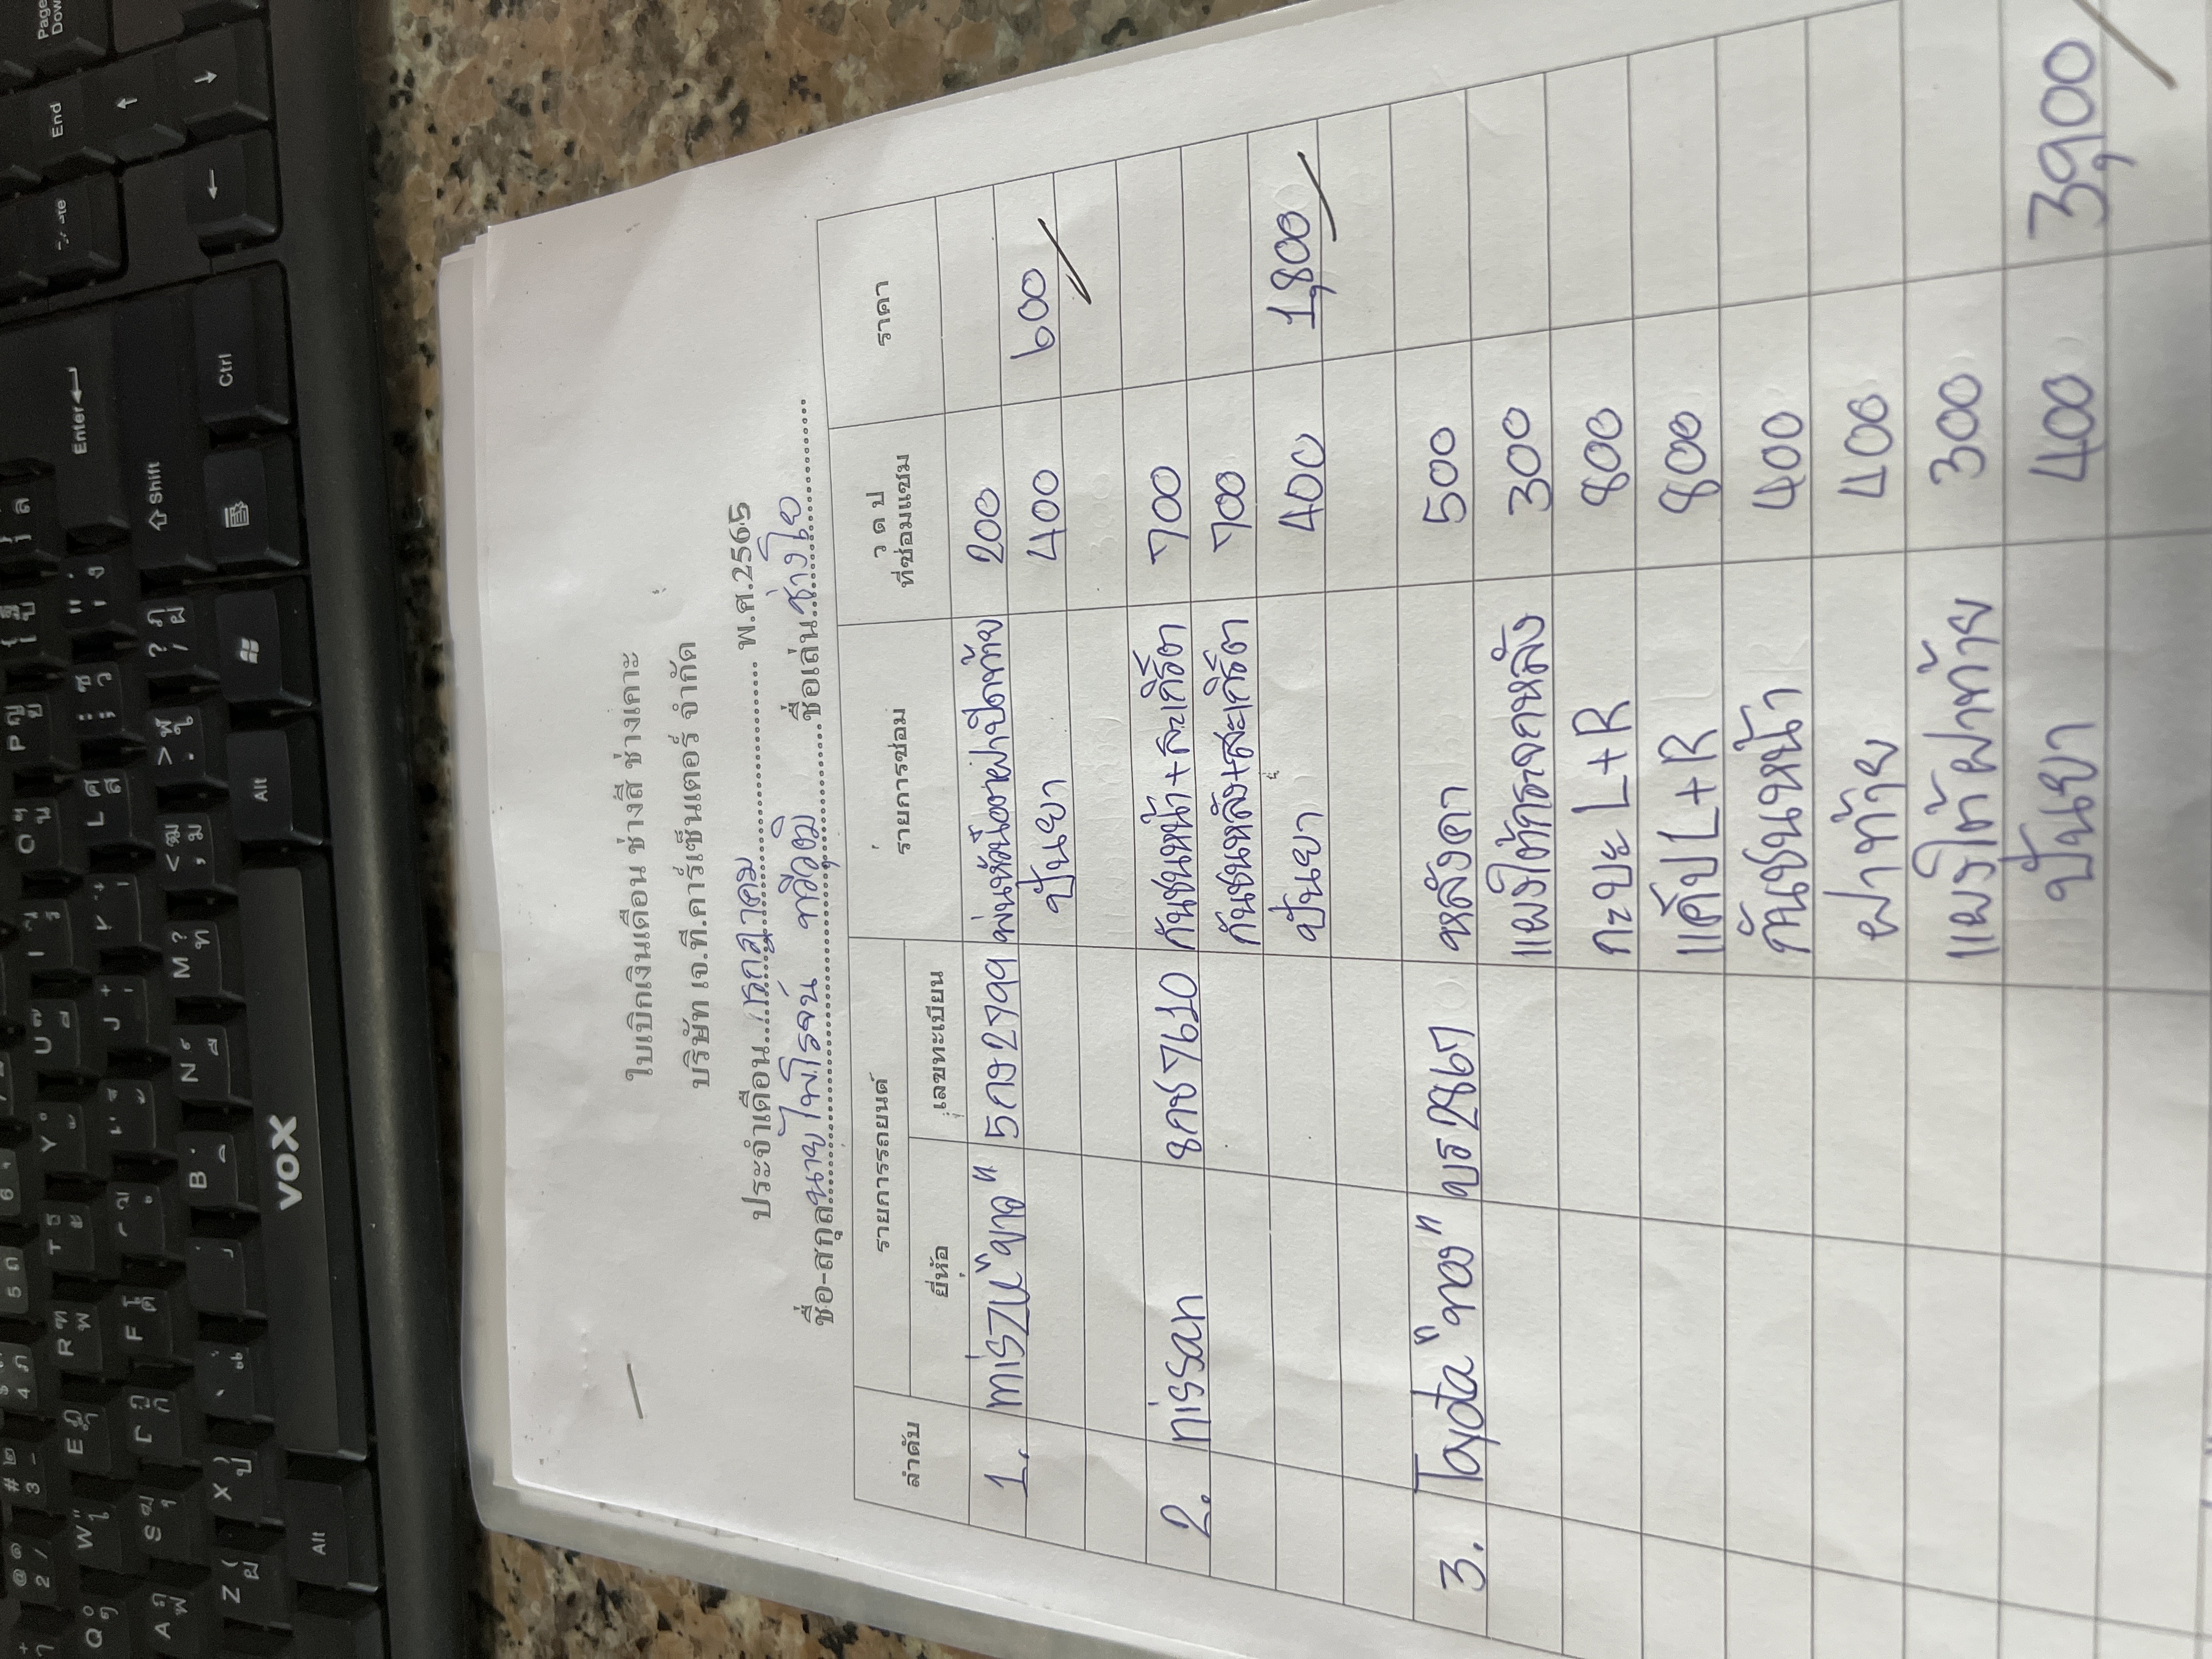 ใบเบิกเงินเดือน ช่างสี ช่างเคาะ
บริษัท เจ.ที.คาร์เซ็นเตอร์ จำกัด
ประจำเดือน...กรกฎาคม.................... พ.ศ.2565
ชื่อ-สกุล นายไพโรจน์ ทวีวุฒิ ชื่อเล่น ช่างโย
ลำดับ รายการรถยนต์ รายการซ่อม ว ด ป ราคา
ยี่ห้อ เลขทะเบียน ที่ซ่อมแซม
1. miszu "ขาว" 5กง2799 ฝาปิดท้าย 200
ปั่นยา 400 600
2. nissan 8กช7610 กันชนหน้า+สะเกิ๊ต 700
กันชนหลัง+สะเกิ๊ต 700
ปั่นยา 400 1,800
3. Toyota "ทอง" บร2867 หลังคา 500
แผงใต้กระจกหลัง 300
กะบะ L+R 800
แค๊ป L+R 800
กันชนหน้า 400
ฝาท้าย 400
แผงใต้ฝาท้าย 300
ปั่นยา 400 3,900
Page Down
End
Enter
Shift
Ctrl
Alt
Alt
VOX